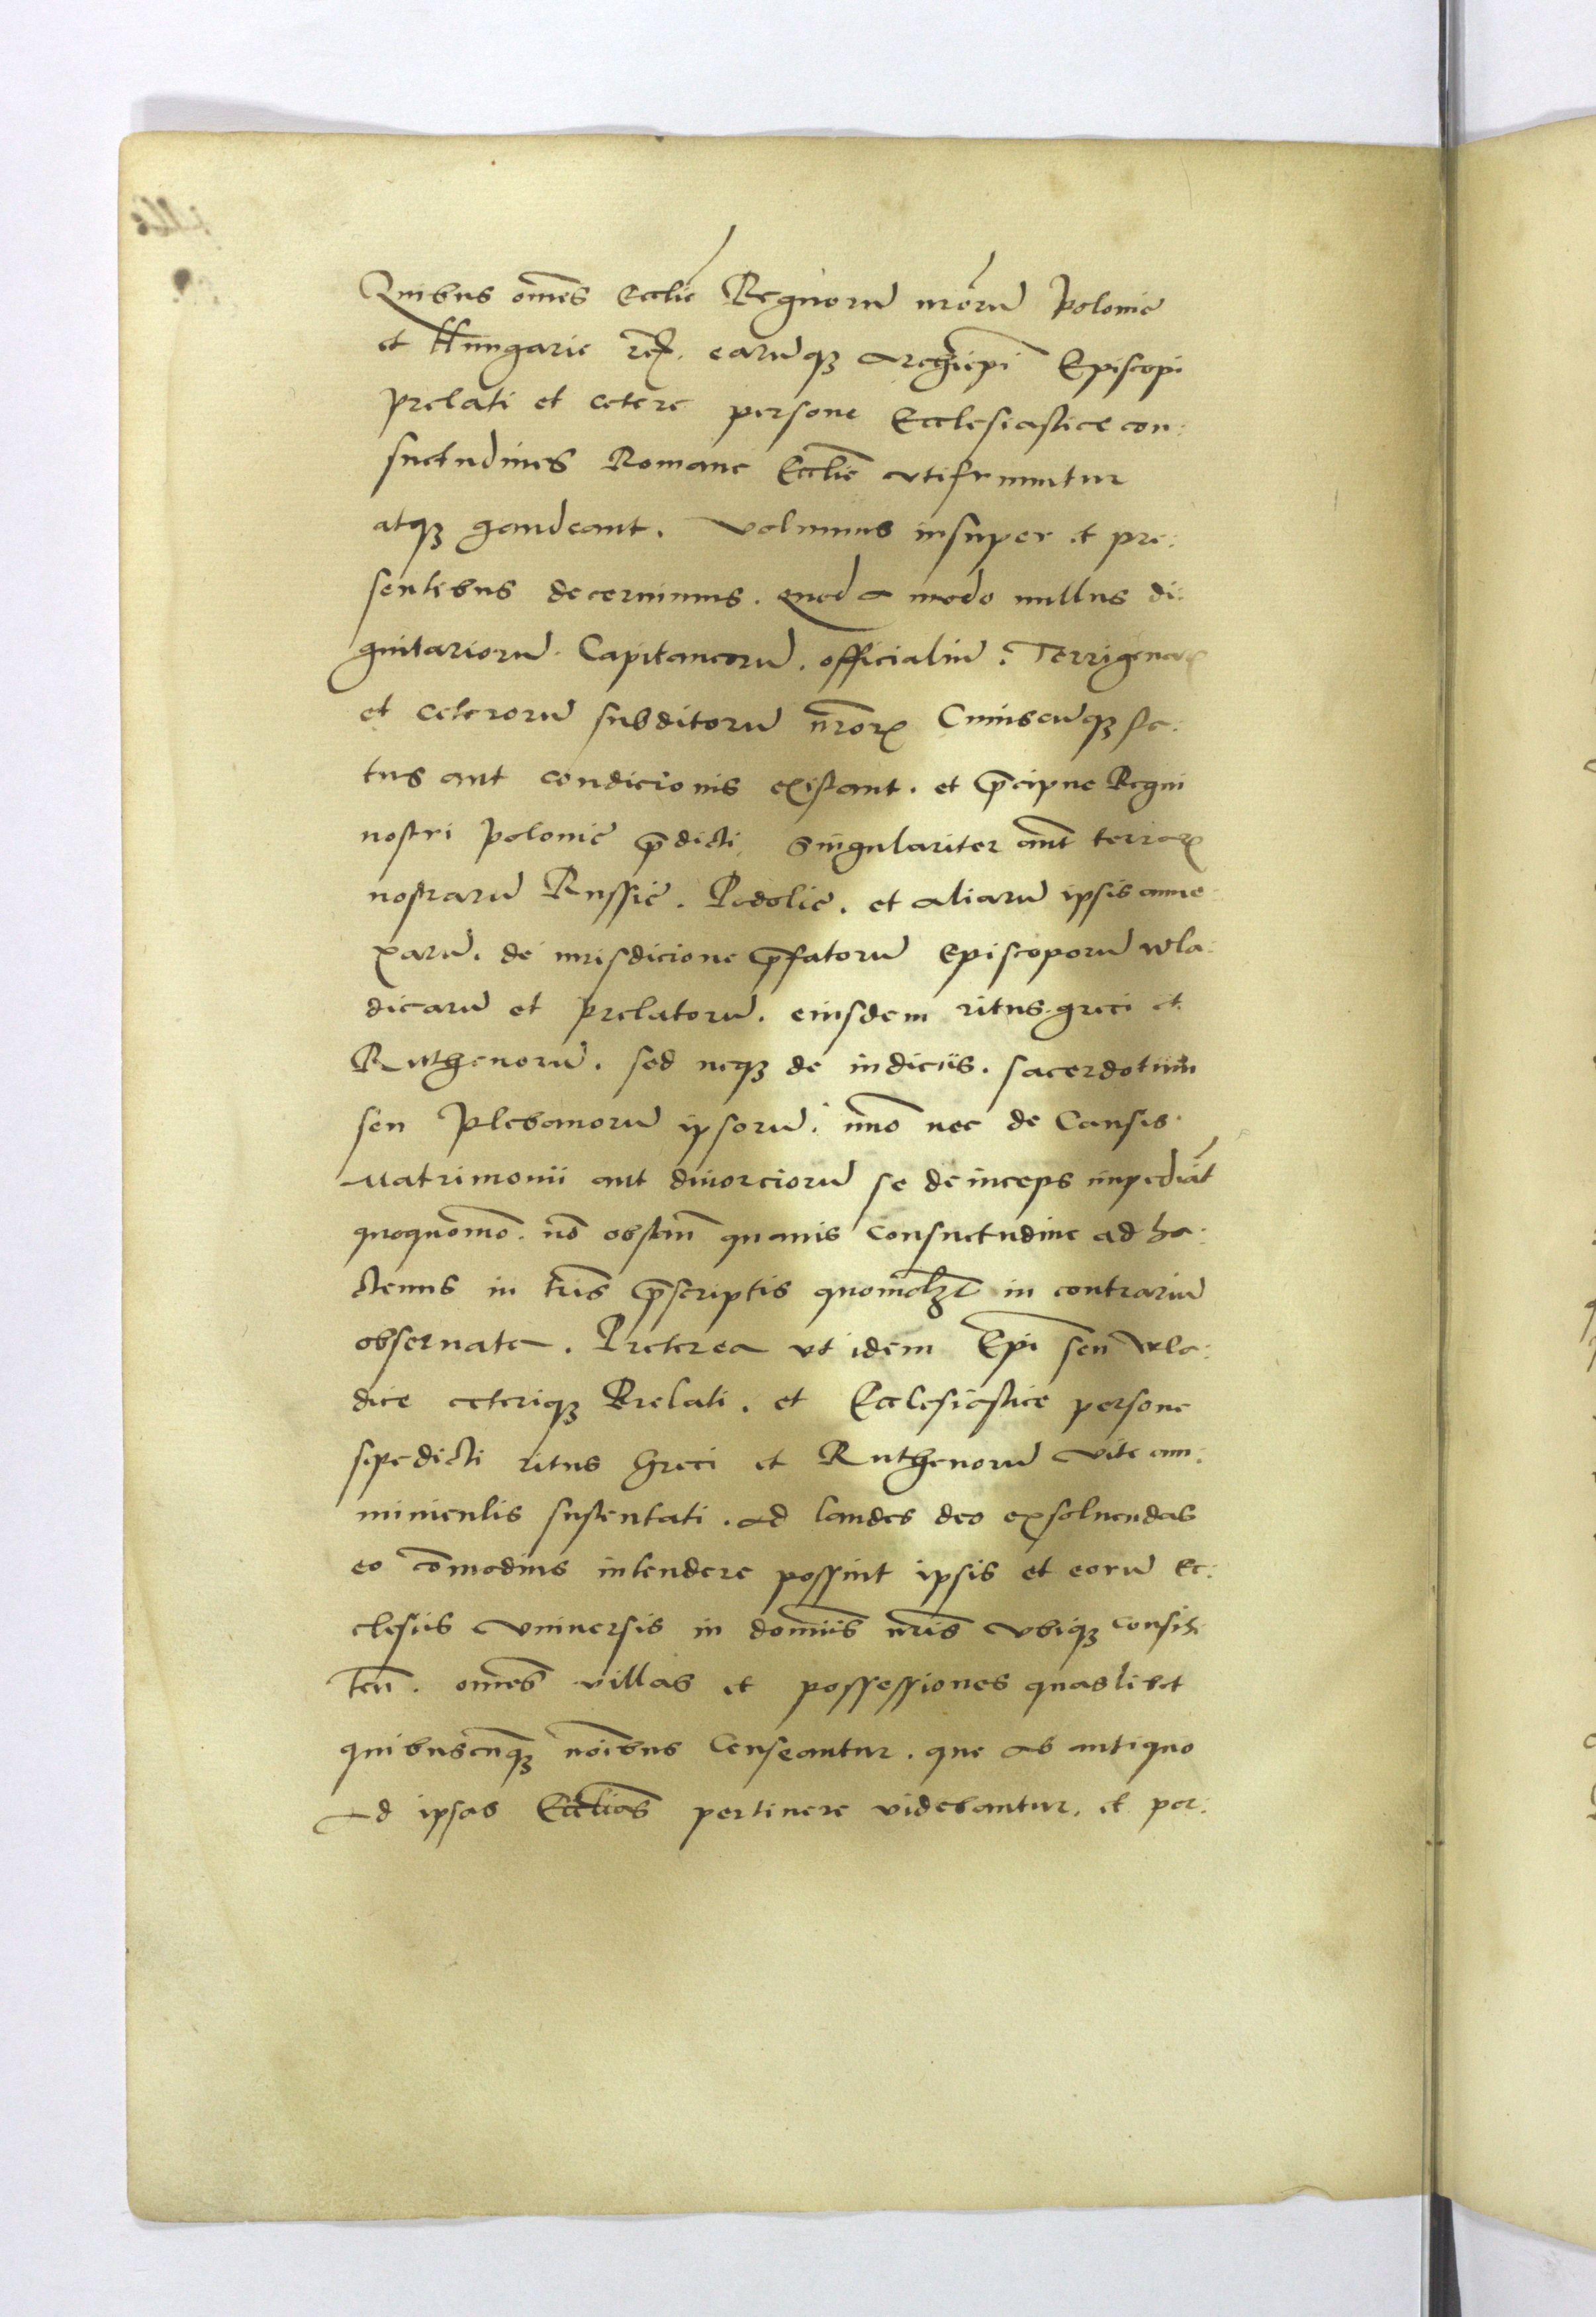 Quibus om̄es Ecclie Regnorū nrōrū Polonie
et Hungarie rēȝ. earūqȝ Archiepī Episcopi
Prelati et cetere persone Ecclesiastice con:
suetudines Romane Ecclīe vtifruuntur
atqȝ gaudeant. Volumus insuper et pre:
sentibus decernimus. quod a modo nullus di:
gnitariorū. Capitaneorū. officialiū. Terrigenarꝝ
et ceterorū subditorū nrōrꝝ Cuiuscūqȝ sta:
tus aut condicionis existant. et p̄cipue Regni
nostri Polonie p̄dicti, Singulariter aūt terrarꝝ
nostrarū Russie. Podolie. et aliarū ipsis anne:
xarū. de iurisdicione p̄fatorū Episcoporū wla:
dicarū et prelatorū. eiusdem ritus greci et
Ruthenorū. sed neqȝ de indiciis. sacerdotum
seu Plebanorū ipsorū. īmo nec de Causis
Matrimonii aut diuorciorū se deinceps impediāt
quoquomō. nō obstan̄ quauis consuetudine ad ha:
ctenus in tris̄ p̄scriptis quomolȝt in contrariū
obseruata. Preterea vt idem Ep̄i seu wla:
dice ceteriqȝ Prelati. et Ecclesiastice persone
sepedicti ritus Greci et Ruthenorū vite am:
miniculis sustentati. ad laudes deo exsoluendas
eo cōmodius intendere possint ipsis et eorū Ec:
clesiis vniuersis in domīis nrīs vbiqȝ consis:
ten̄. om̄es villas et possessiones quaslibet
quibuscūqȝ noībus Censeantur. que ab antiquo
Ad ipsas Ecclīas pertinere videbantur. et per: